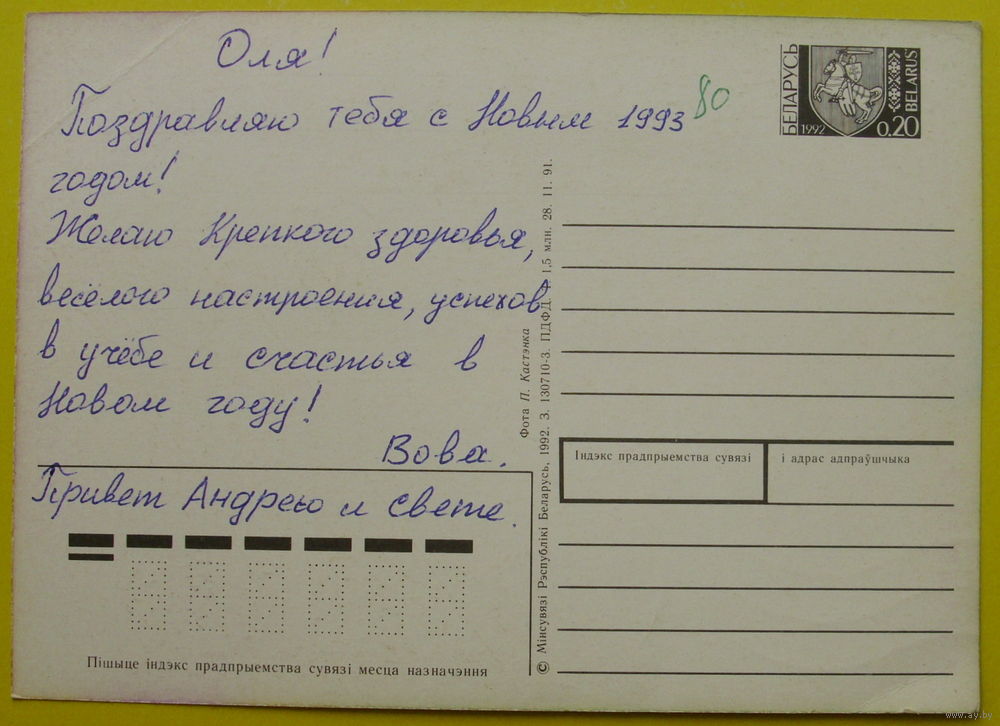 Оля!
Поздравляю тебя с Новым 1993
годом!
Желаю Крепкого здоровья,
весёлого настроения, успехов
в учёбе и счастья в
Новом году!
Вова.
Привет Андрею и Свете.
80
БЕЛАРУСЬ
1992
0.20
BELARUS
Фота П. Кастэнка
© Мінсувязі Рэспублікі Беларусь, 1992. З. 130710-3. ПДФД. 1,5 млн. 28. 11. 91.
Індэкс прадпрыемства сувязі
і адрас адпраўшчыка
Пішыце індэкс прадпрыемства сувязі месца назначэння
www.ay.by